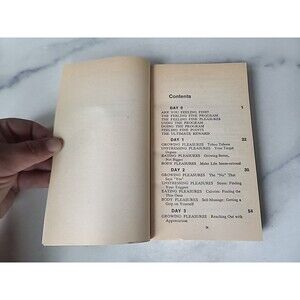 Contents
DAY 0 1
ARE YOU FEELING FINE?
THE FEELING FINE PROGRAM
THE FEELING FINE PLEASURES
USING THE PROGRAM
DOING THE PROGRAM
FEELING FINE POINTS
THE ULTIMATE REWARD
DAY 1 22
GROWING PLEASURES Token
UNSTRESSING PLEASURES Your Target
Organs
EATING PLEASURES Growing Better,
Not Bigger
BODY PLEASURES Make Life
DAY 2
GROWING PLEASURES The "No" That
Says "Yes"
UNSTRESSING PLEASURES Stress: Finding
Your Triggers
EATING PLEASURES Calories: Finding the
Thin Ones
BODY PLEASURES Self-Massage: Getting a
Grip on Yourself
DAY 3 54
GROWING PLEASURES Reaching Out with
Appreciation